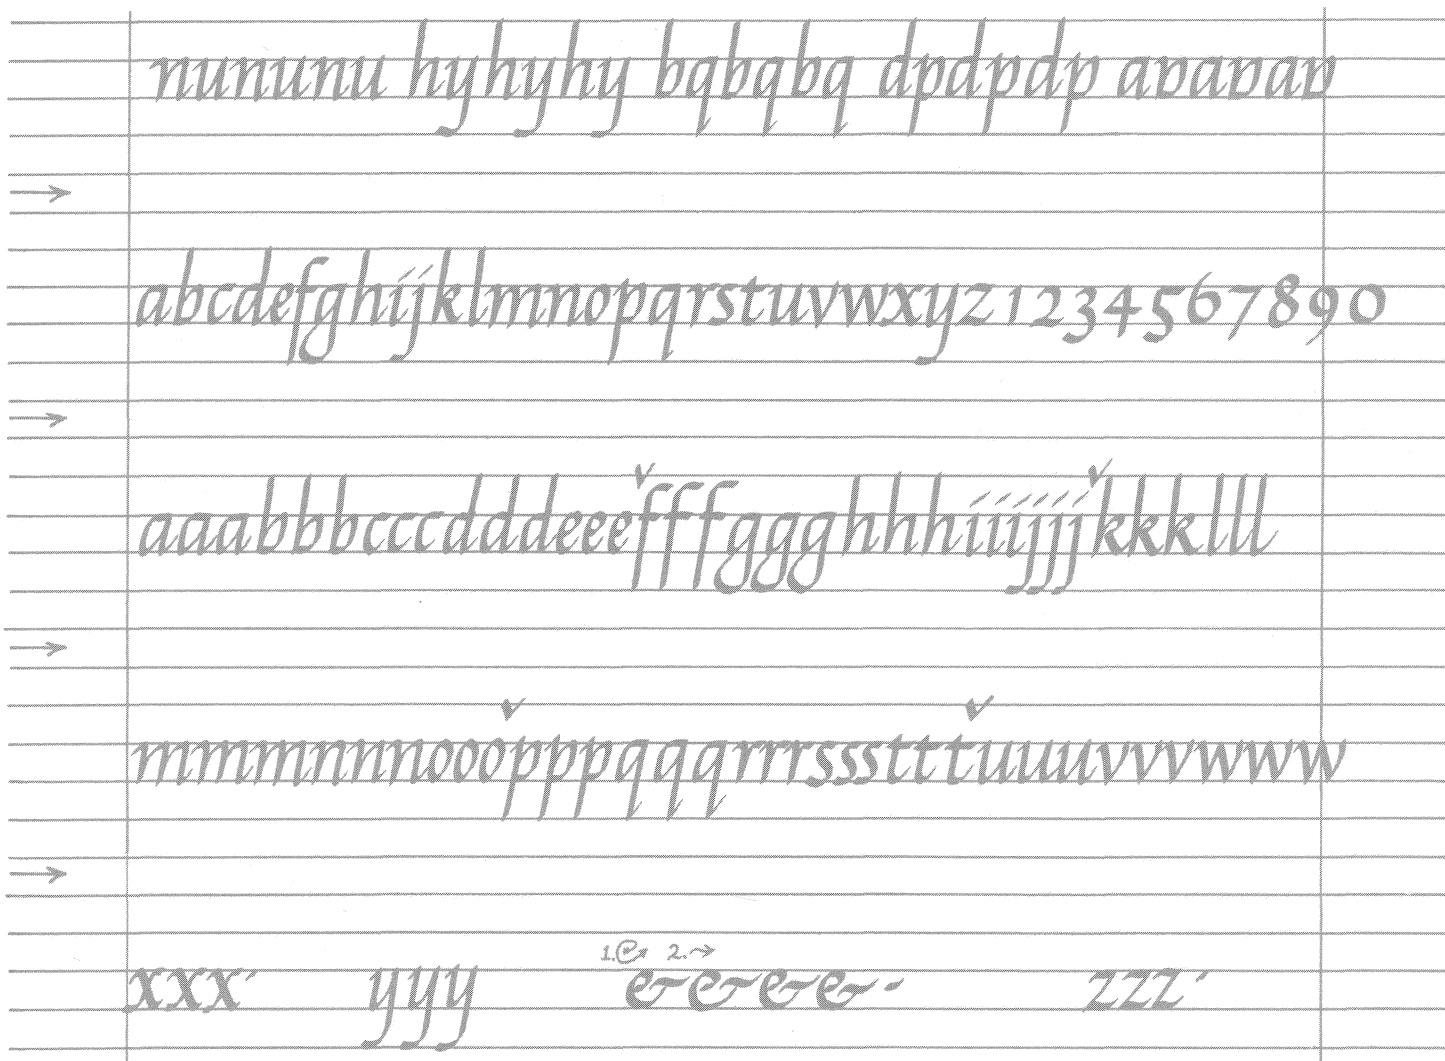 nununu hyhyhy bqbqbq dpdpdp avavav
abcdefghijklmnopqrstuvwxyz1234567890
aaabbbcccdddeeefffggghhhiiijjjkkklll
mmmnnnooopppqqqrrrssstttuuuvvvwww
1. 2.
xxx yyy &&&& zzz